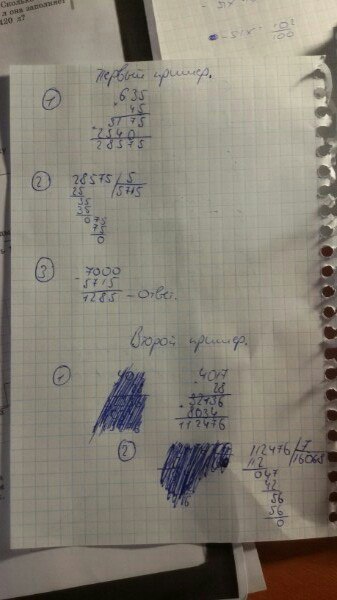 Сколько
л она заполняет
420 л?
- 51x = 102/100
Первый пример.
1
.635
45
3175
.2540
28575
2
28575 | 5
25 | 5715
35
35
075
75
0
3
-7000
5715
1285 - Ответ.
Второй пример.
1
.4017
28
32136
.8034
112476
2
112476 | 7
112 | 16068
047
42
56
56
0